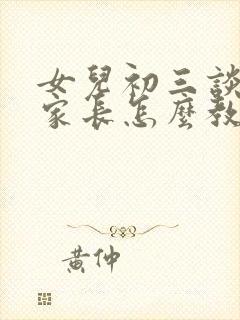 女兒初三談
家長怎麼教
黃仲